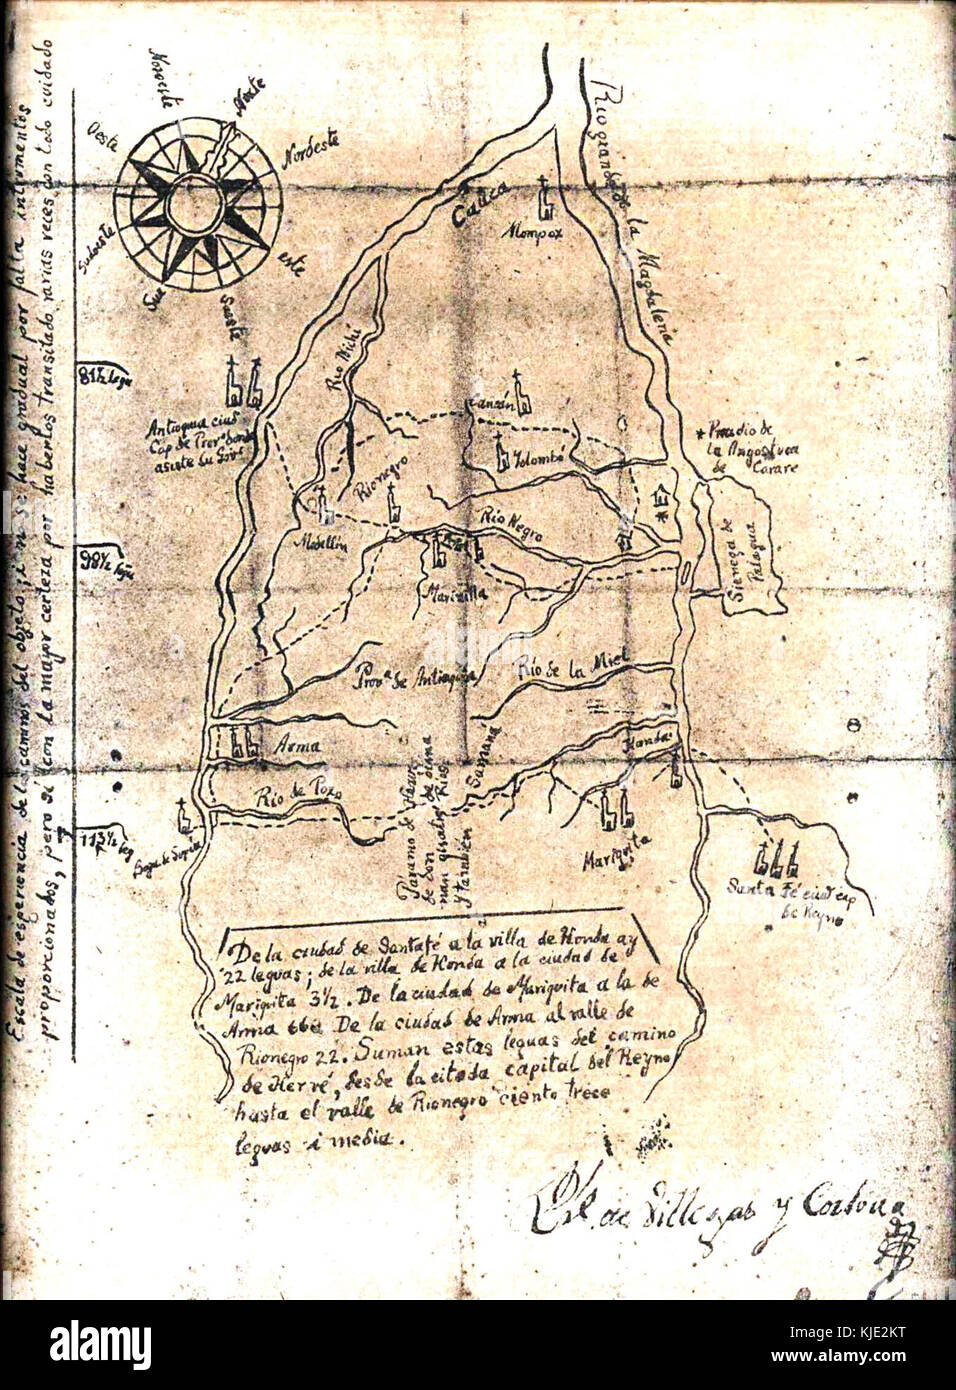 Escala de esperiencia de los caminos del objeto; i n se hace gradual por falta intrumentos
proporcionados, pero si con la mayor certeza por haberlos transitado varias veces con todo cuidado
Noroeste
Norte
Oeste
Nordeste
Sudoeste
este
Sur
Sueste
81½ legs
98½ legs
113½ leg
Rio grande de la Magdalena
Cauca
Mompox
Rio Nichí
Antioquia ciud
Cap de Prova donde
asiste su Gov
Cancán
Yolombó
Rionegro
Medellín
Río Negro
Marinilla
* Presdio de
la Angostura
de Carare
Sienega de
Patagua
Prova de Antioquia
Río de la Miel
Arma
Honda
Río de Pozo
Samaná
Páramo de Herve
de con de ima
nan quatro Rios
y también
Vega de Supía
Mariquita
Santa Fé ciud cap
de Reyno
De la ciudad de Santafé a la villa de Honda ay
22 leguas; de la villa de Honda a la ciudad de
Mariquita 3½. De la ciudad de Mariquita a la de
Arma 66. De la ciudad de Arma al valle de
Rionegro 22. Suman estas leguas del camino
de Hervé, desde la citada capital del Reyno
hasta el valle de Rionegro ciento trece
leguas i media.
de Villegas y Cordova
alamy
Image ID: KJE2KT
www.alamy.com